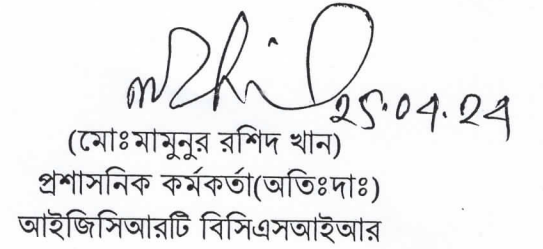 25.04.24
(মোঃমামুনুর রশিদ খান)
প্রশাসনিক কর্মকর্তা(অতিঃদাঃ)
আইজিসিআরটি বিসিএসআইআর